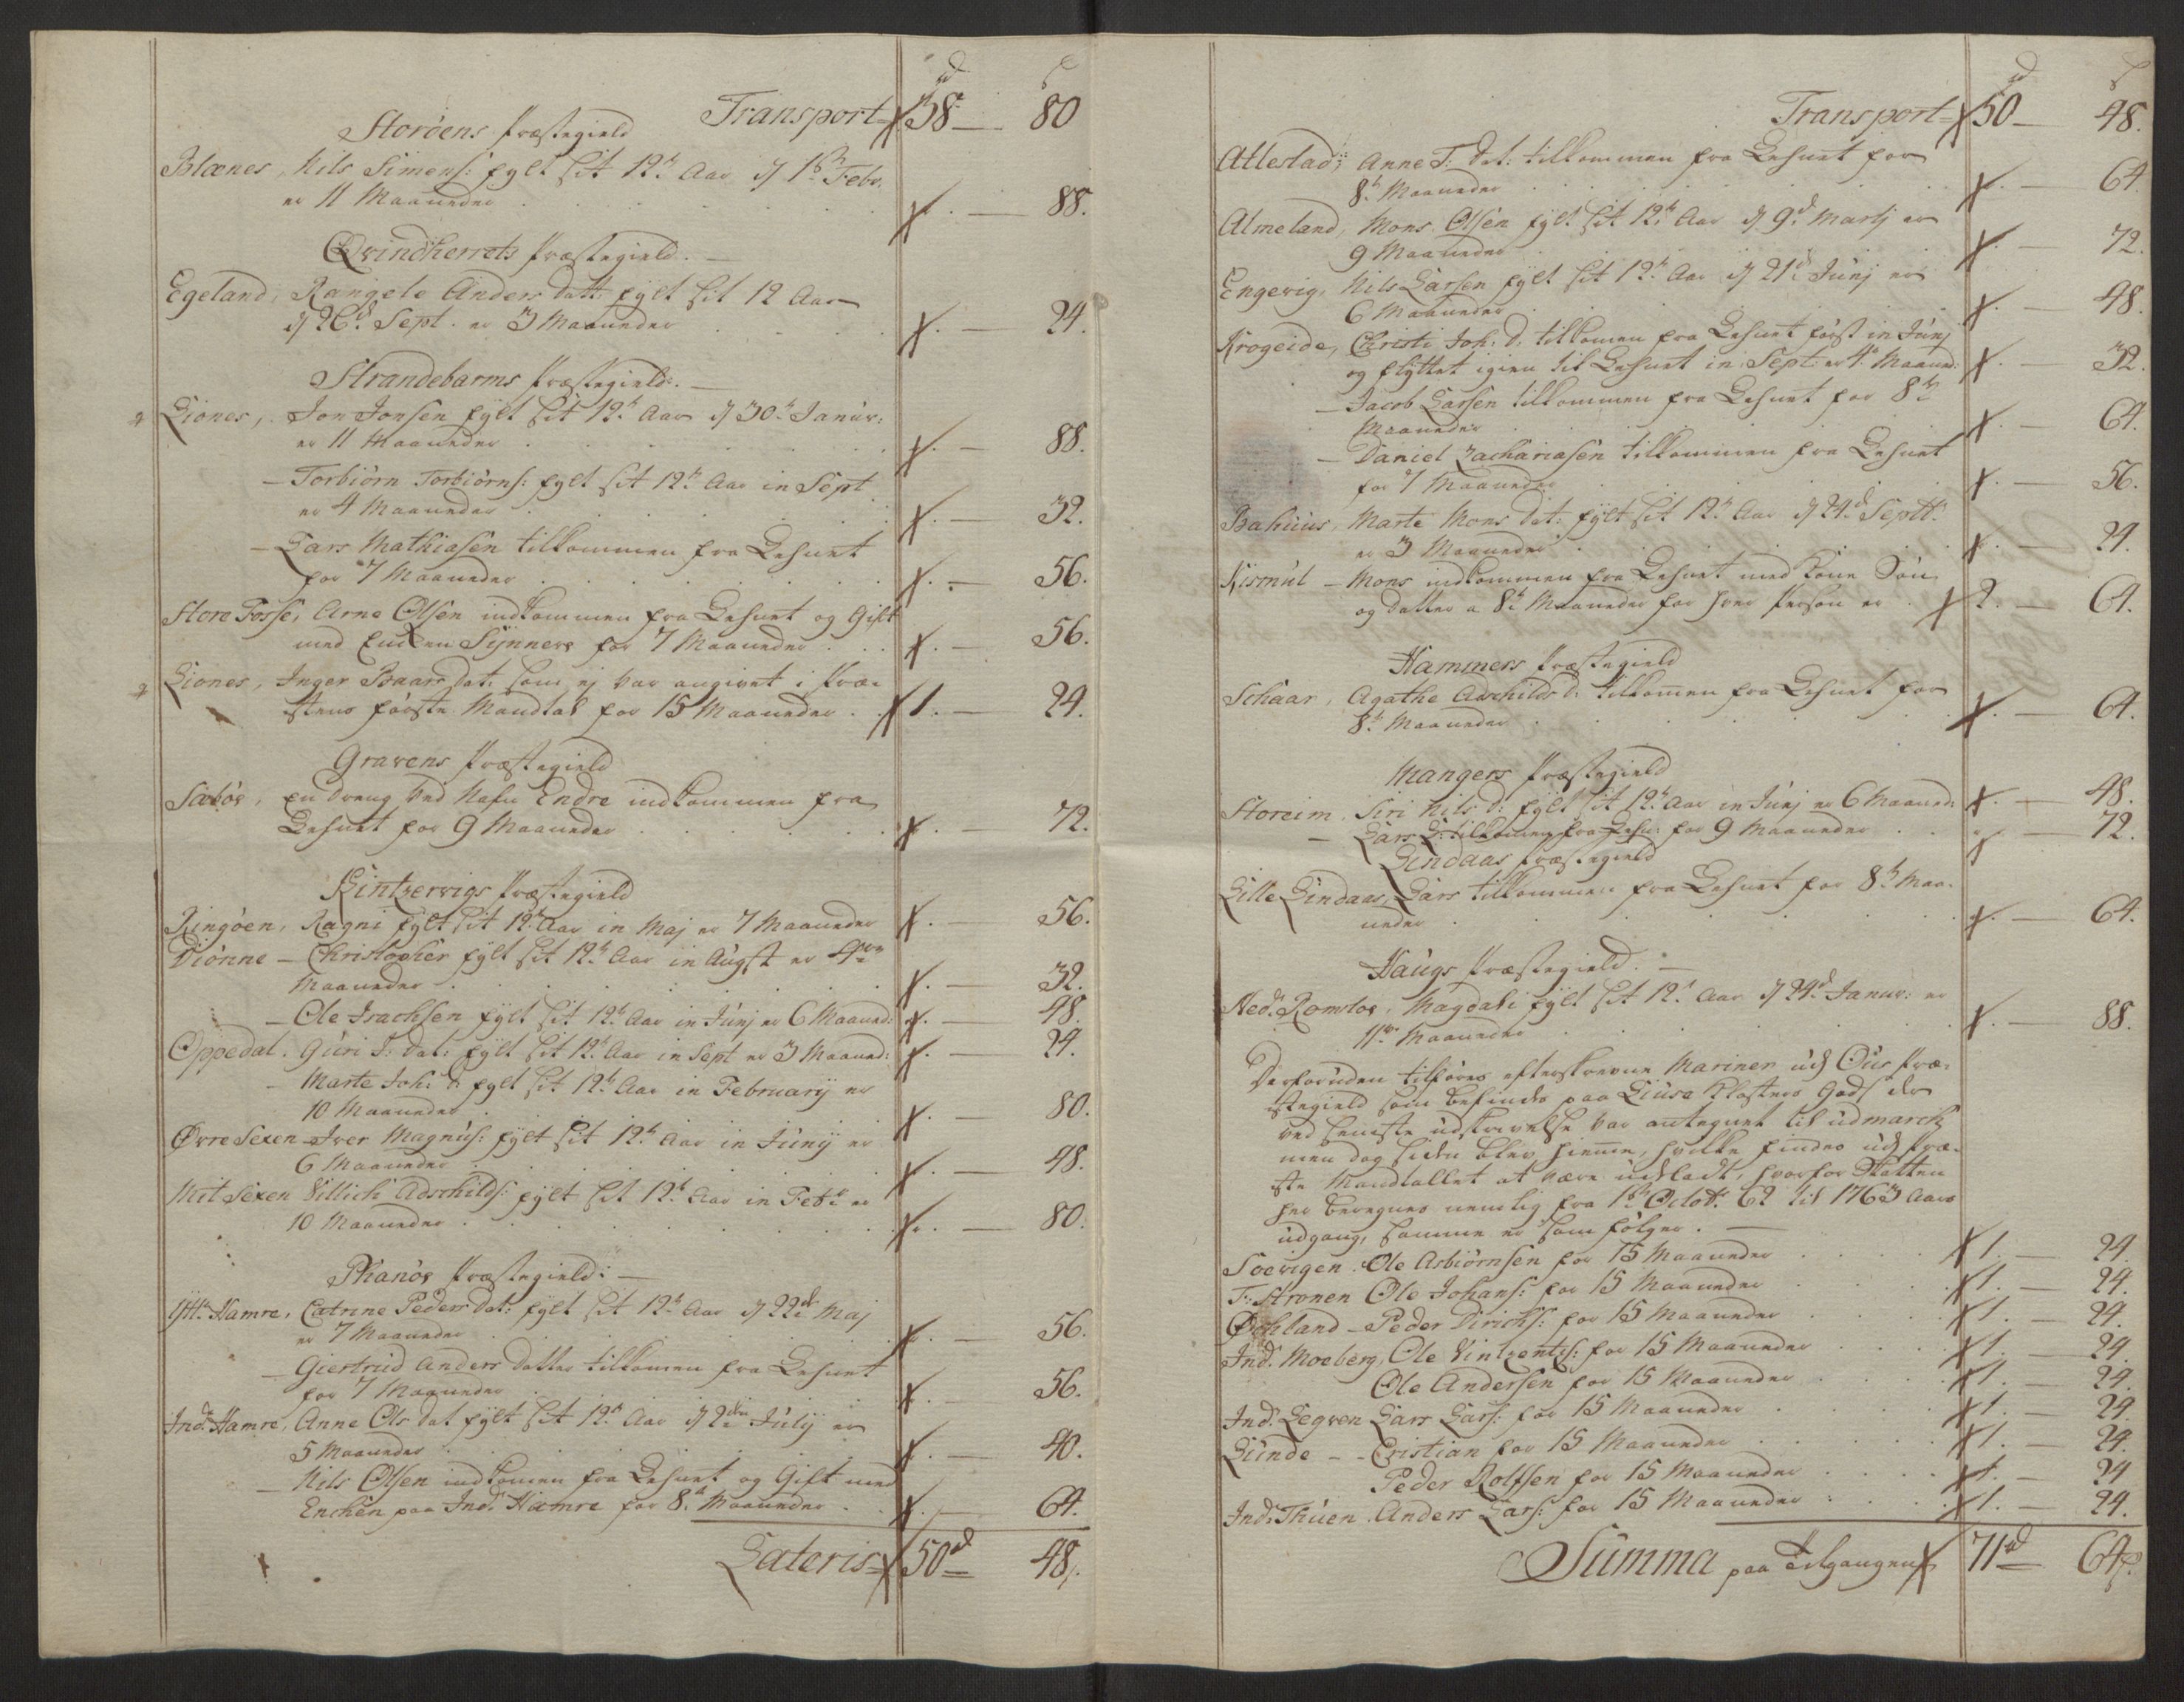 rd ß
Transport 38 — 80
Storöens Præstegield
Blænes, Nils Simens: fylt sit 12te Aar d 1ste Febr.
er 11 Maaneder . — 88.
Qvindherrets Præstegield.
Egeland, Rangele Anders datt: fylt sit 12 Aar
d 26de Sept. er 3 Maaneder — 24.
Strandebarms Præstegield.
Liones, Jon Jonsen fylt sit 12te Aar d 30te Janur:
er 11 Maaneder — 88.
— Torbiörn Torbiörns: fylt sit 12te Aar in Sept
er 4 Maaneder — 32.
— Lars Mathiasen tilkommen fra Lehnet
for 7 Maaneder — 56.
Store Fosse, Arne Olsen indkommen fra Lehnet og Gift
med Enken Synneve for 7 Maaneder — 56.
Liones, Inger Baars dat: som ej var angivet i Præ-
stens förste Mandtal for 15 Maaneder 1. — 24.
Gravens Præstegield
Sæböe, en dreng ved Nafn Endre indkommen fra
Lehnet for 9 Maaneder — 72.
Kintzervigs Præstegield
Ringöen, Ragni fylt sit 12te Aar in Maj er 7 Maaneder — 56.
Diönne — Christopher fylt sit 12te Aar in Augst er 4re
Maaneder — 32.
— Ole Isachsen fylt sit 12te Aar in Junj er 6 Maaned: — 48.
Oppedal. Guri J: dat: fylt sit 12te Aar in Sept er 3 Maaned: — 24.
— Marte Joh: d: fylt sit 12te Aar in February er
10 Maaneder — 80.
Øvre Sexen Iver Magnús: fylt sit 12te Aar in Junij er
6 Maaneder — 48.
Mit Sexen Villich Adschilds: fylt sit 12te Aar in Febr er
10 Maaneder — 80.
Phanöe Præstegield:
Ytt: Hamre, Catrine Peders dat: fylt sit 12te Aar d 22de Maj
er 7 Maaneder — 56.
— Giertrud Anders datter tilkomen fra Lehnet
for 7 Maaneder — 56.
Ind: Hamre, Anne Ols dat fylt sit 12te Aar d 2den July er
5 Maaneder — 40.
— Nils Olsen indkomen fra Lehnet og Gift med
Enchen paa Ind: Hamre for 8te Maaneder — 64.
Lateris 50rd — 48ß.
rd ß
Transport 50 — 48.
Atlestad, Anne T: dat: tilkommen fra Lehnet for
8te Maaneder — 64.
Almeland, Mons Olsen fylt sit 12te Aar d 9de Martj er
9 Maaneder — 72.
Engevig, Nils Larsen fylt sit 12te Aar d 21de Junj er
6 Maaneder — 48.
Krogeide, Christi Joh: d: tilkomen fra Lehnet först in Junj
og flyttet igien til Lehnet in Sept: er 4re Maaned: — 32.
— Jacob Larsen tilkommen fra Lehnet for 8te
Maaneder — 64.
— Daniel Zachariasen tilkommen fra Lehnet
for 7 Maaneder — 56.
Bahuus, Marte Mons dat: fylt sit 12te Aar d 24de Septt:
er 3 Maaneder — 24.
Kismul — Mons indkommen fra Lehnet med Kone Sön
og datter a 8te Maaneder for hver Person er 2. — 64.
Hammers Præstegield
Schaar, Agathe Adschilds d: tilkomen fra Lehnet for
8te Maaneder — 64.
Mangers Præstegield
Storeim, Siri Nils d: fylt sit 12te Aar in Junj er 6 Maaned: — 48.
— Lars L: tilkomen fra Lehn: for 9 Maaneder — 72.
Lindaas Præstegield
Lille Lindaas, Lars tilkommen fra Lehnet for 8te Maa-
neder — 64.
Haugs Præstegield.
Ned: Romsloe, Magdali fylt sit 12te Aar d 24de Janur: er
11 Maaneder — 88.
Desforuden tilföres efterskrevne Mariner udj Ous Præ-
stegield som befindes paa Liuse Klosters Gods der
ved seniste udskrivelse var antegnet til udmarch
men dog siden blev hieme, hvilke findes udj Præ-
ste Mandtallet at være udeladt, hvorfor Skatten
her beregnes nemlig fra 1ste Octobr. 62 til 1763 Aars
udgang, samme er som fölger.
Soevigen. Ole Asbiörnsen for 15 Maaneder 1. — 24.
T: Strönen Ole Johans: for 15 Maaneder 1. — 24.
Øchland — Peder Dirichs: for 15 Maaneder 1. — 24.
Ind: Moeberg, Ole Vintzents: for 15 Maaneder 1. — 24.
Ole Andersen for 15 Maaneder 1. — 24.
Ind: Legven Lars Lars: for 15 Maaneder 1. — 24.
Lunde — Cristian for 15 Maaneder 1. — 24.
Peder Rolfsen for 15 Maaneder 1. — 24
Ind: Thuen. Anders Lars: for 15 Maaneder 1. — 24.
Summa paa Tilgangen 71rd — 64ß.